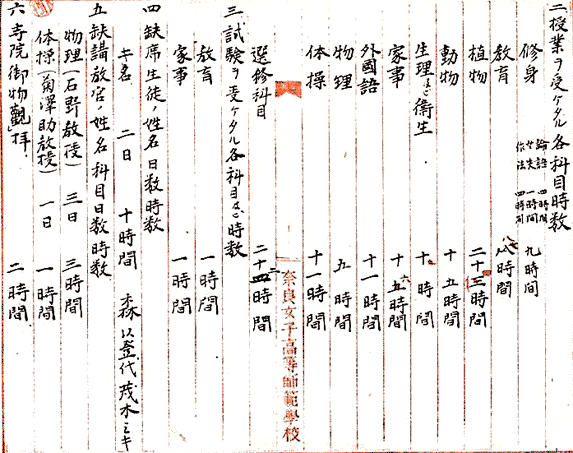 二 授業ヲ受ケタル各科目時数
修身 論語 四時間 女大 一時間 作法 四時間 九時間
教育 八時間
植物 二十三時間
動物 十五時間
生理及ビ衛生 十時間
家事 十五時間
外國語 十一時間
物理 五時間
体操 十一時間
奈良女子高等師範學校
選修科目 二十四時間
三 試験ヲ受ケタル各科目及ビ時数
教育 一時間
家事 一時間
四 缺席生徒ノ姓名日数時数
二日 十時間
五 缺講教官ノ姓名科目日数時数
物理(石野教授) 三日 三時間
体操(菊澤助教授) 一日 一時間
六 寺院御物觀拝 二時間